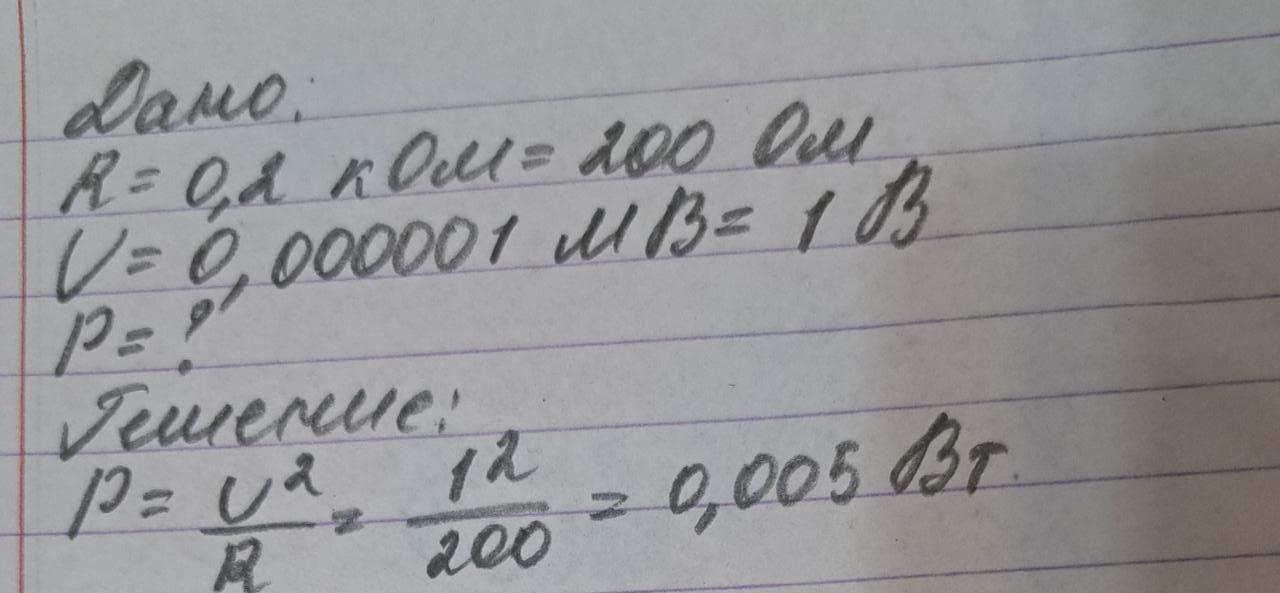 Дано:
R = 0,2 кОм = 200 Ом
U = 0,000001 МВ = 1 В
P = ?
Решение:
P = U²/R = 1²/200 = 0,005 Вт.